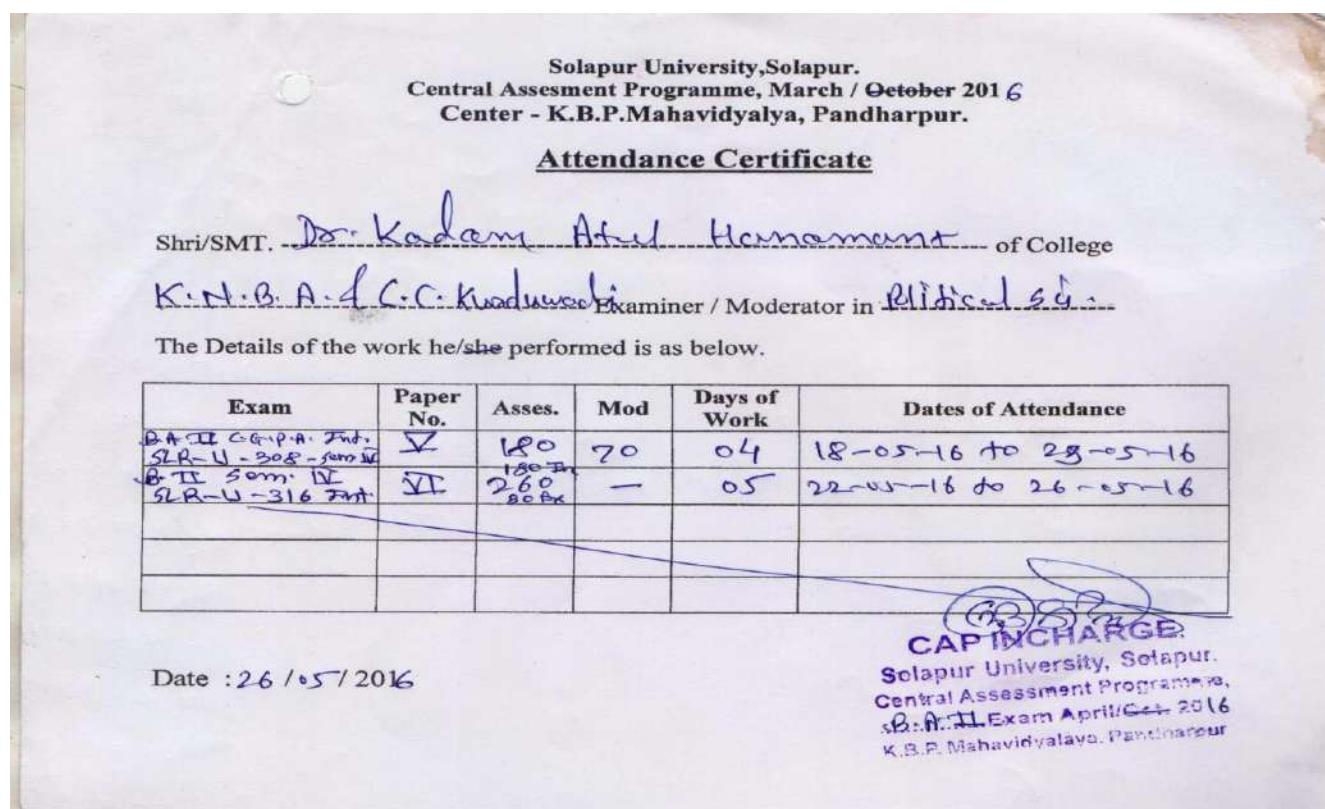 Solapur University,Solapur.
Central Assesment Programme, March / October 2016
Center - K.B.P.Mahavidyalya, Pandharpur.
Attendance Certificate
Shri/SMT. Dr. Kadam Atul Hanamant of College
K.N.B. A. & C.C. Kurduwadi Examiner / Moderator in Political Sci.
The Details of the work he/she performed is as below.
Exam Paper No. Asses. Mod Days of Work Dates of Attendance
B.A II C.G.P.A. Int. SLR-U-308-Sem IV V 180 70 04 18-05-16 to 29-05-16
B. II Sem. IV SLR-U-316 Int. VI 180 In 260 80 Ex — 05 22-05-16 to 26-05-16
CAP INCHARGE
Date : 26/05/2016
Solapur University, Solapur.
Central Assessment Programme,
B.A. II Exam April/Oct. 2016
K.B.P. Mahavidyalaya, Pandharpur